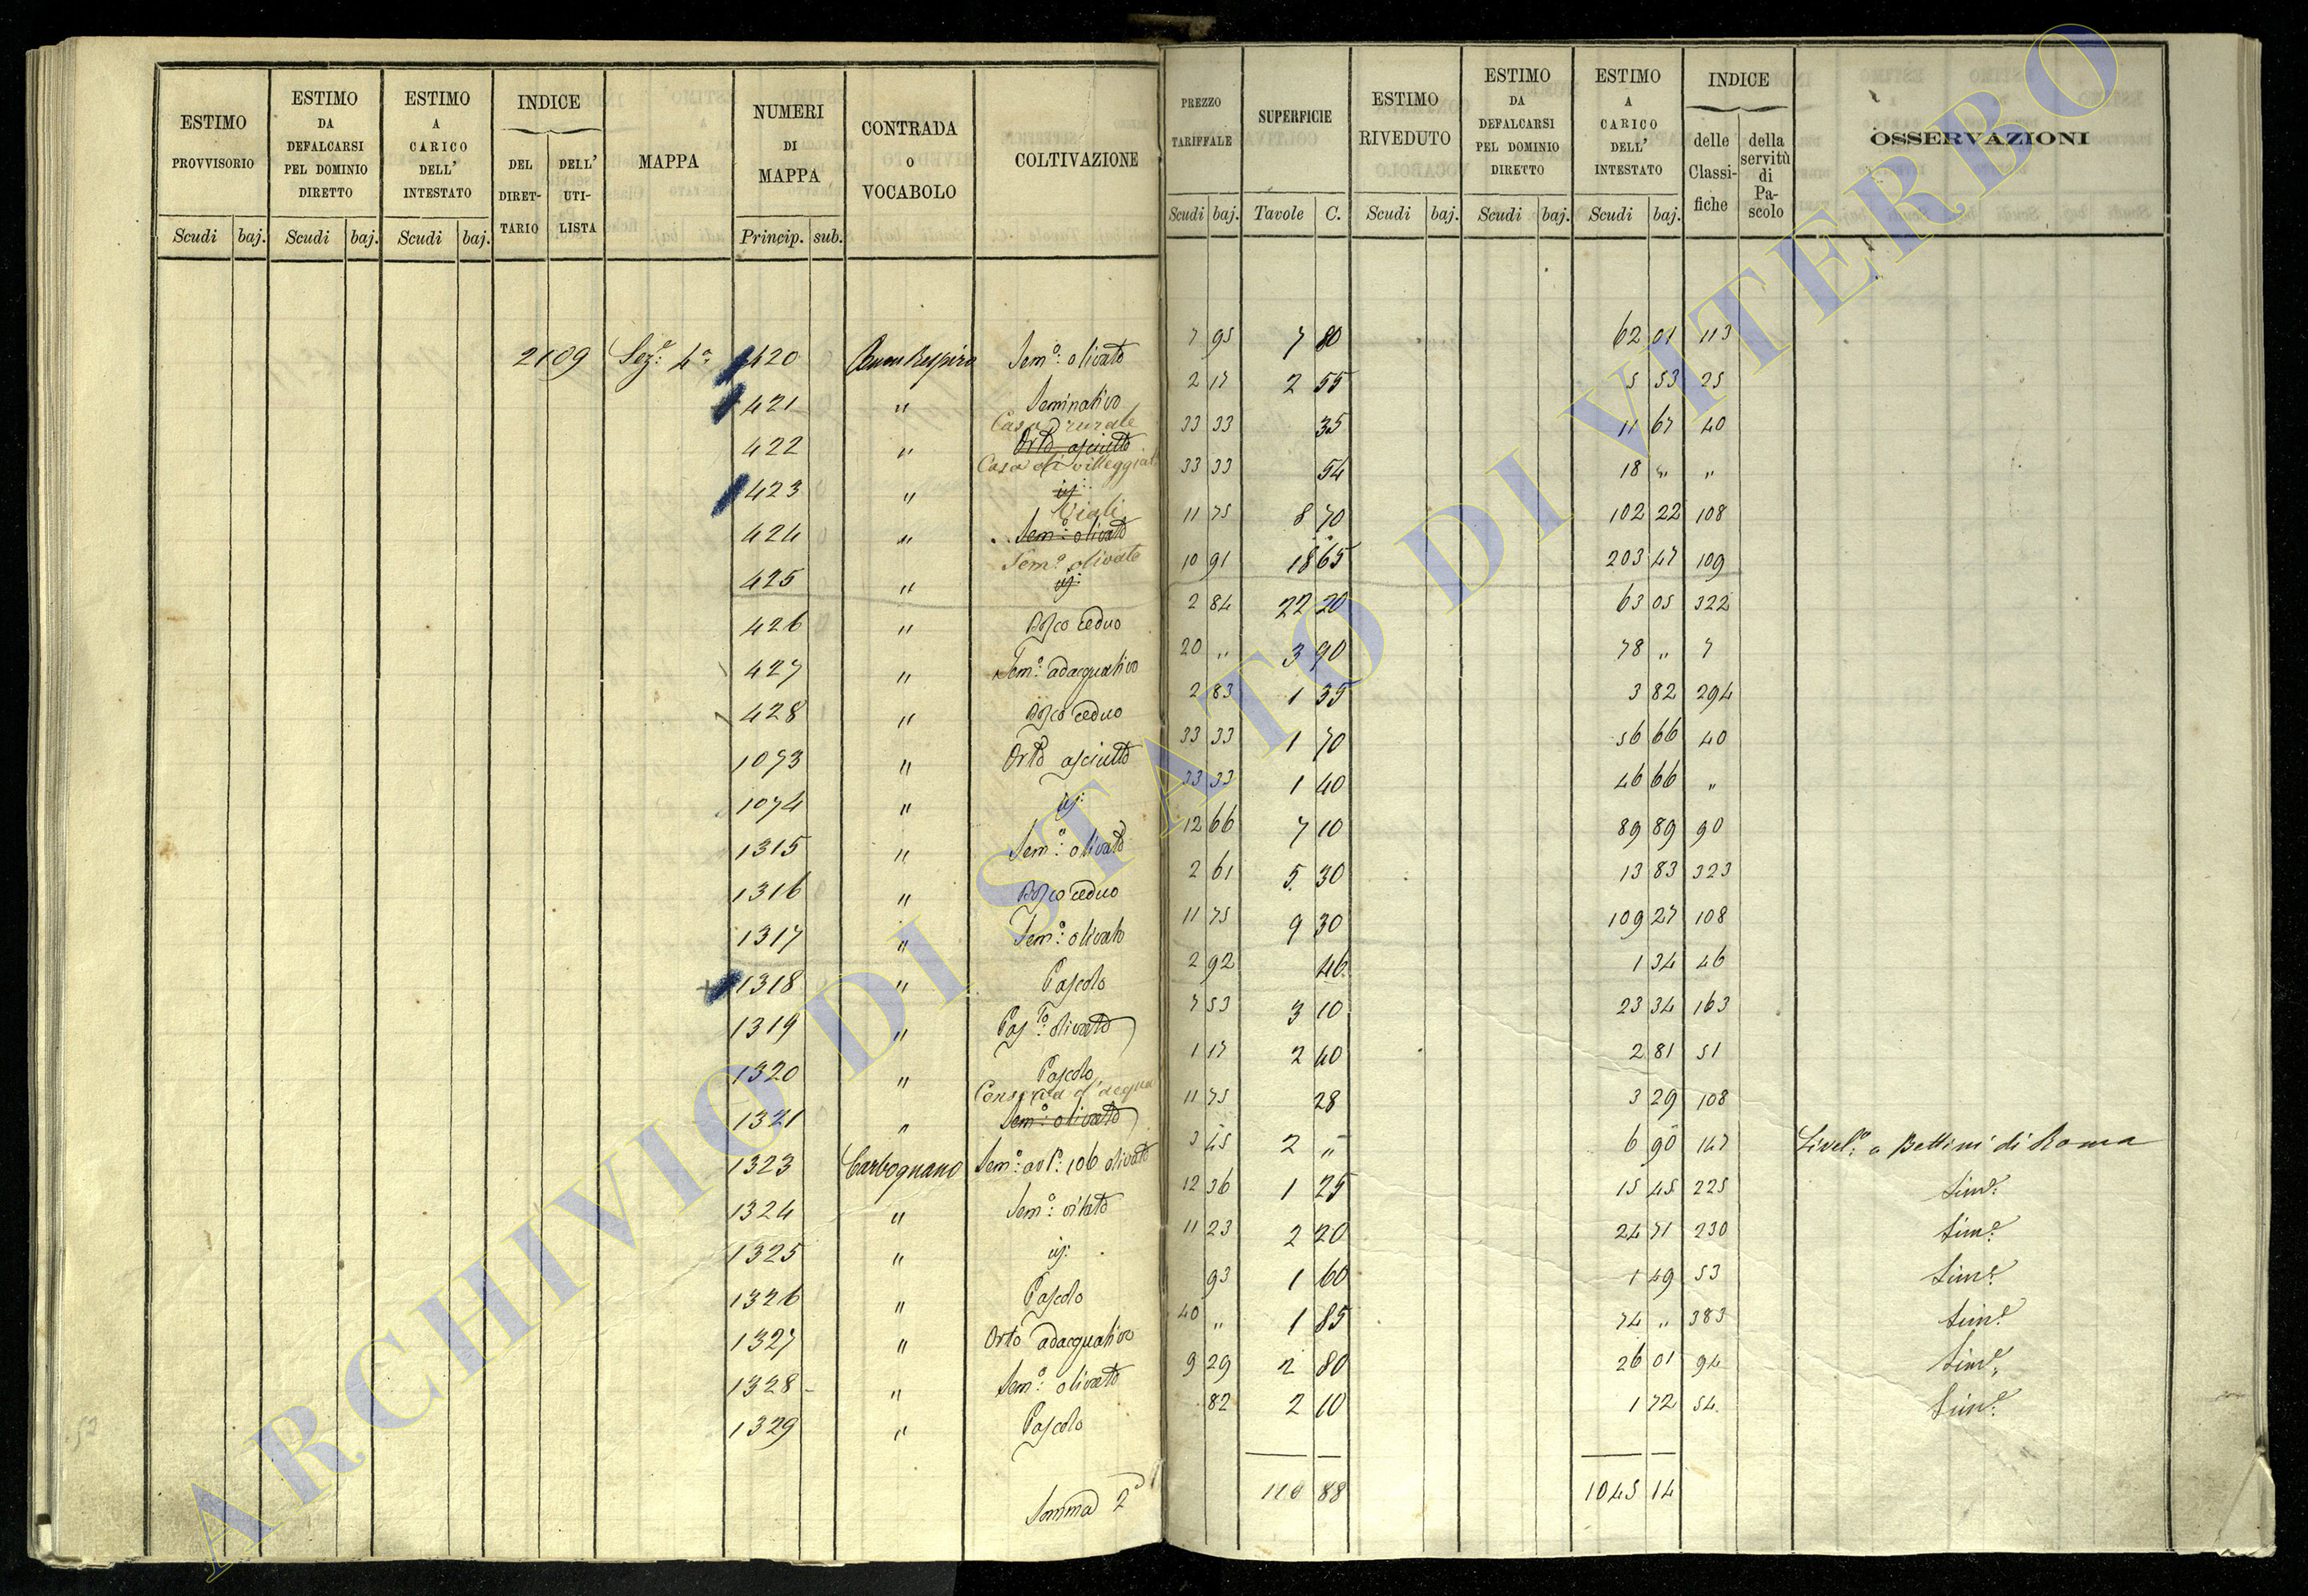 ESTIMO PROVVISORIO
ESTIMO DA DEFALCARSI PEL DOMINIO DIRETTO
ESTIMO A CARICO DELL' INTESTATO
INDICE
DEL DIRETTARIO
DELL' UTILISTA
MAPPA
NUMERI DI MAPPA
CONTRADA O VOCABOLO
COLTIVAZIONE
PREZZO TARIFFALE
SUPERFICIE
ESTIMO RIVEDUTO
ESTIMO DA DEFALCARSI PEL DOMINIO DIRETTO
ESTIMO A CARICO DELL' INTESTATO
INDICE
delle Classifiche
della servitù di Pascolo
OSSERVAZIONI
Scudi baj. Scudi baj. Scudi baj. Princip. sub. Scudi baj. Tavole C. Scudi baj. Scudi baj. Scudi baj.
2109 Sez.e 4a 420 Buon Respiro Sem.o: olivato 7 95 7 80 62 01 113
421 " Seminativo 2 17 2 55 5 53 25
Casa rurale
422 " Orto asciutto 33 33 35 11 67 40
Casa di villeggiat.
423 " id: 33 33 54 18 " "
Viali
424 " Sem.o: olivato 11 75 8 70 102 22 108
Sem.o olivato
425 " id: 10 91 18 65 203 47 109
426 " Bosco ceduo 2 84 22 20 63 05 322
427 " Sem.o: adacquativo 20 " 3 90 78 " 7
428 " Bosco ceduo 2 83 1 35 3 82 294
1073 " Orto asciutto 33 33 1 70 56 66 40
1074 " id: 33 33 1 40 46 66 "
1315 " Sem.o: olivato 12 66 7 10 89 89 90
1316 " Bosco ceduo 2 61 5 30 13 83 323
1317 " Sem.o: olivato 11 75 9 30 109 27 108
1318 " Pascolo 2 92 46 1 34 46
1319 " Pas.to: olivato 7 53 3 10 23 34 163
1320 " Pascolo 1 17 2 40 2 81 51
Conserva d'acqua
1321 " Sem.o: olivato 11 75 28 3 29 108
1323 Carbognano Sem.o: ad P: 106 olivato 3 45 2 " 6 90 147 Livel.o: a Bettini di Roma
1324 " Sem.o: vitato 12 36 1 25 15 45 225 Sim.e:
1325 " id: 11 23 2 20 24 71 230 Sim.e:
1326 " Pascolo 93 1 60 1 49 53 Sim.e:
1327 " Orto adacquativo 40 " 1 85 74 " 383 Sim.e:
1328 " Sem.o: olivato 9 29 2 80 26 01 94 Sim.e:
1329 " Pascolo 82 2 10 1 72 54 Sim.e:
Somma 2a 110 88 1045 14
ARCHIVIO DI STATO DI VITERBO